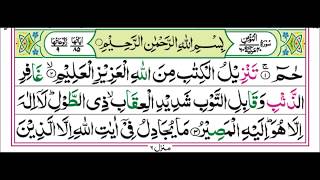 بِسْمِ اللهِ الرَّحْمٰنِ الرَّحِيْمِ
حٰمٓ ۚ تَنْزِيْلُ الْكِتٰبِ مِنَ اللهِ الْعَزِيْزِ الْعَلِيْمِ ۙ غَافِرِ
الذَّنْۢبِ وَقَابِلِ التَّوْبِ شَدِيْدِ الْعِقَابِ ذِى الطَّوْلِ ؕ لَاۤ اِلٰهَ
اِلَّا هُوَ ؕ اِلَيْهِ الْمَصِيْرُ ۳ مَا يُجَادِلُ فِىْۤ اٰيٰتِ اللهِ اِلَّا الَّذِيْنَ
منزل ٦